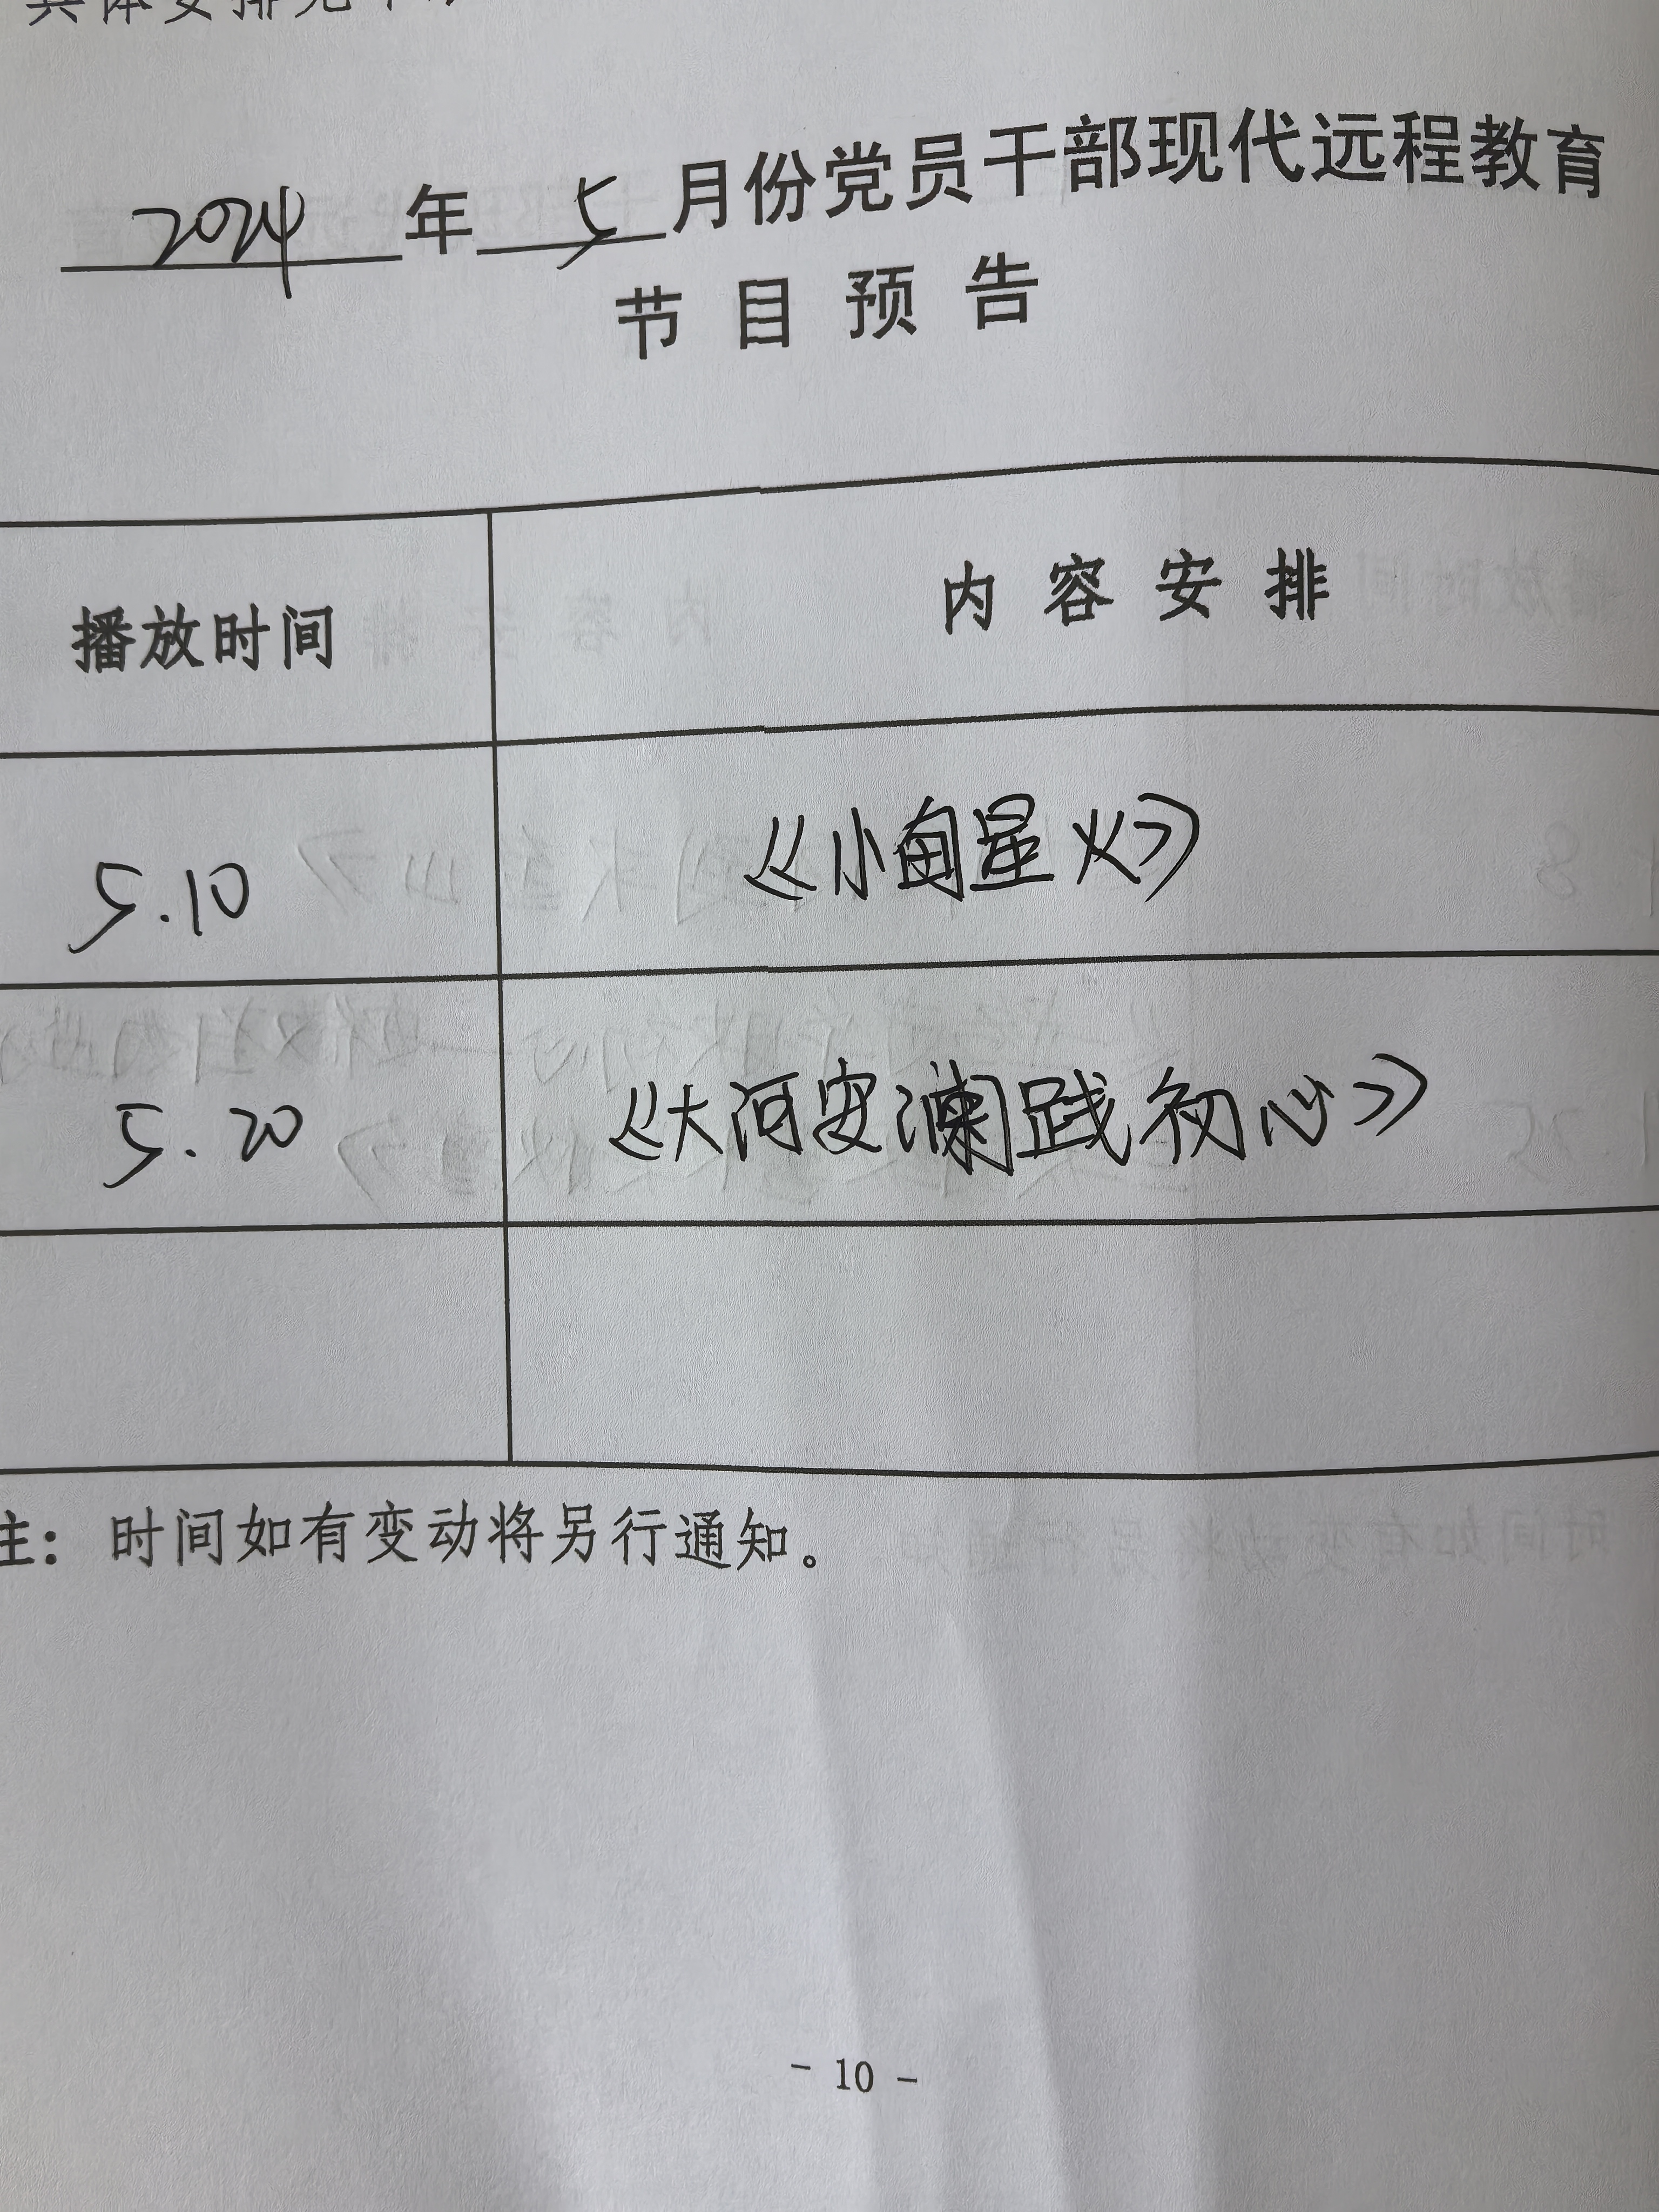 2024年5月份党员干部现代远程教育
节目预告
播放时间 内容安排
5.10 《小甸星火》
5.20 《大河安澜践初心》
注：时间如有变动将另行通知。
- 10 -